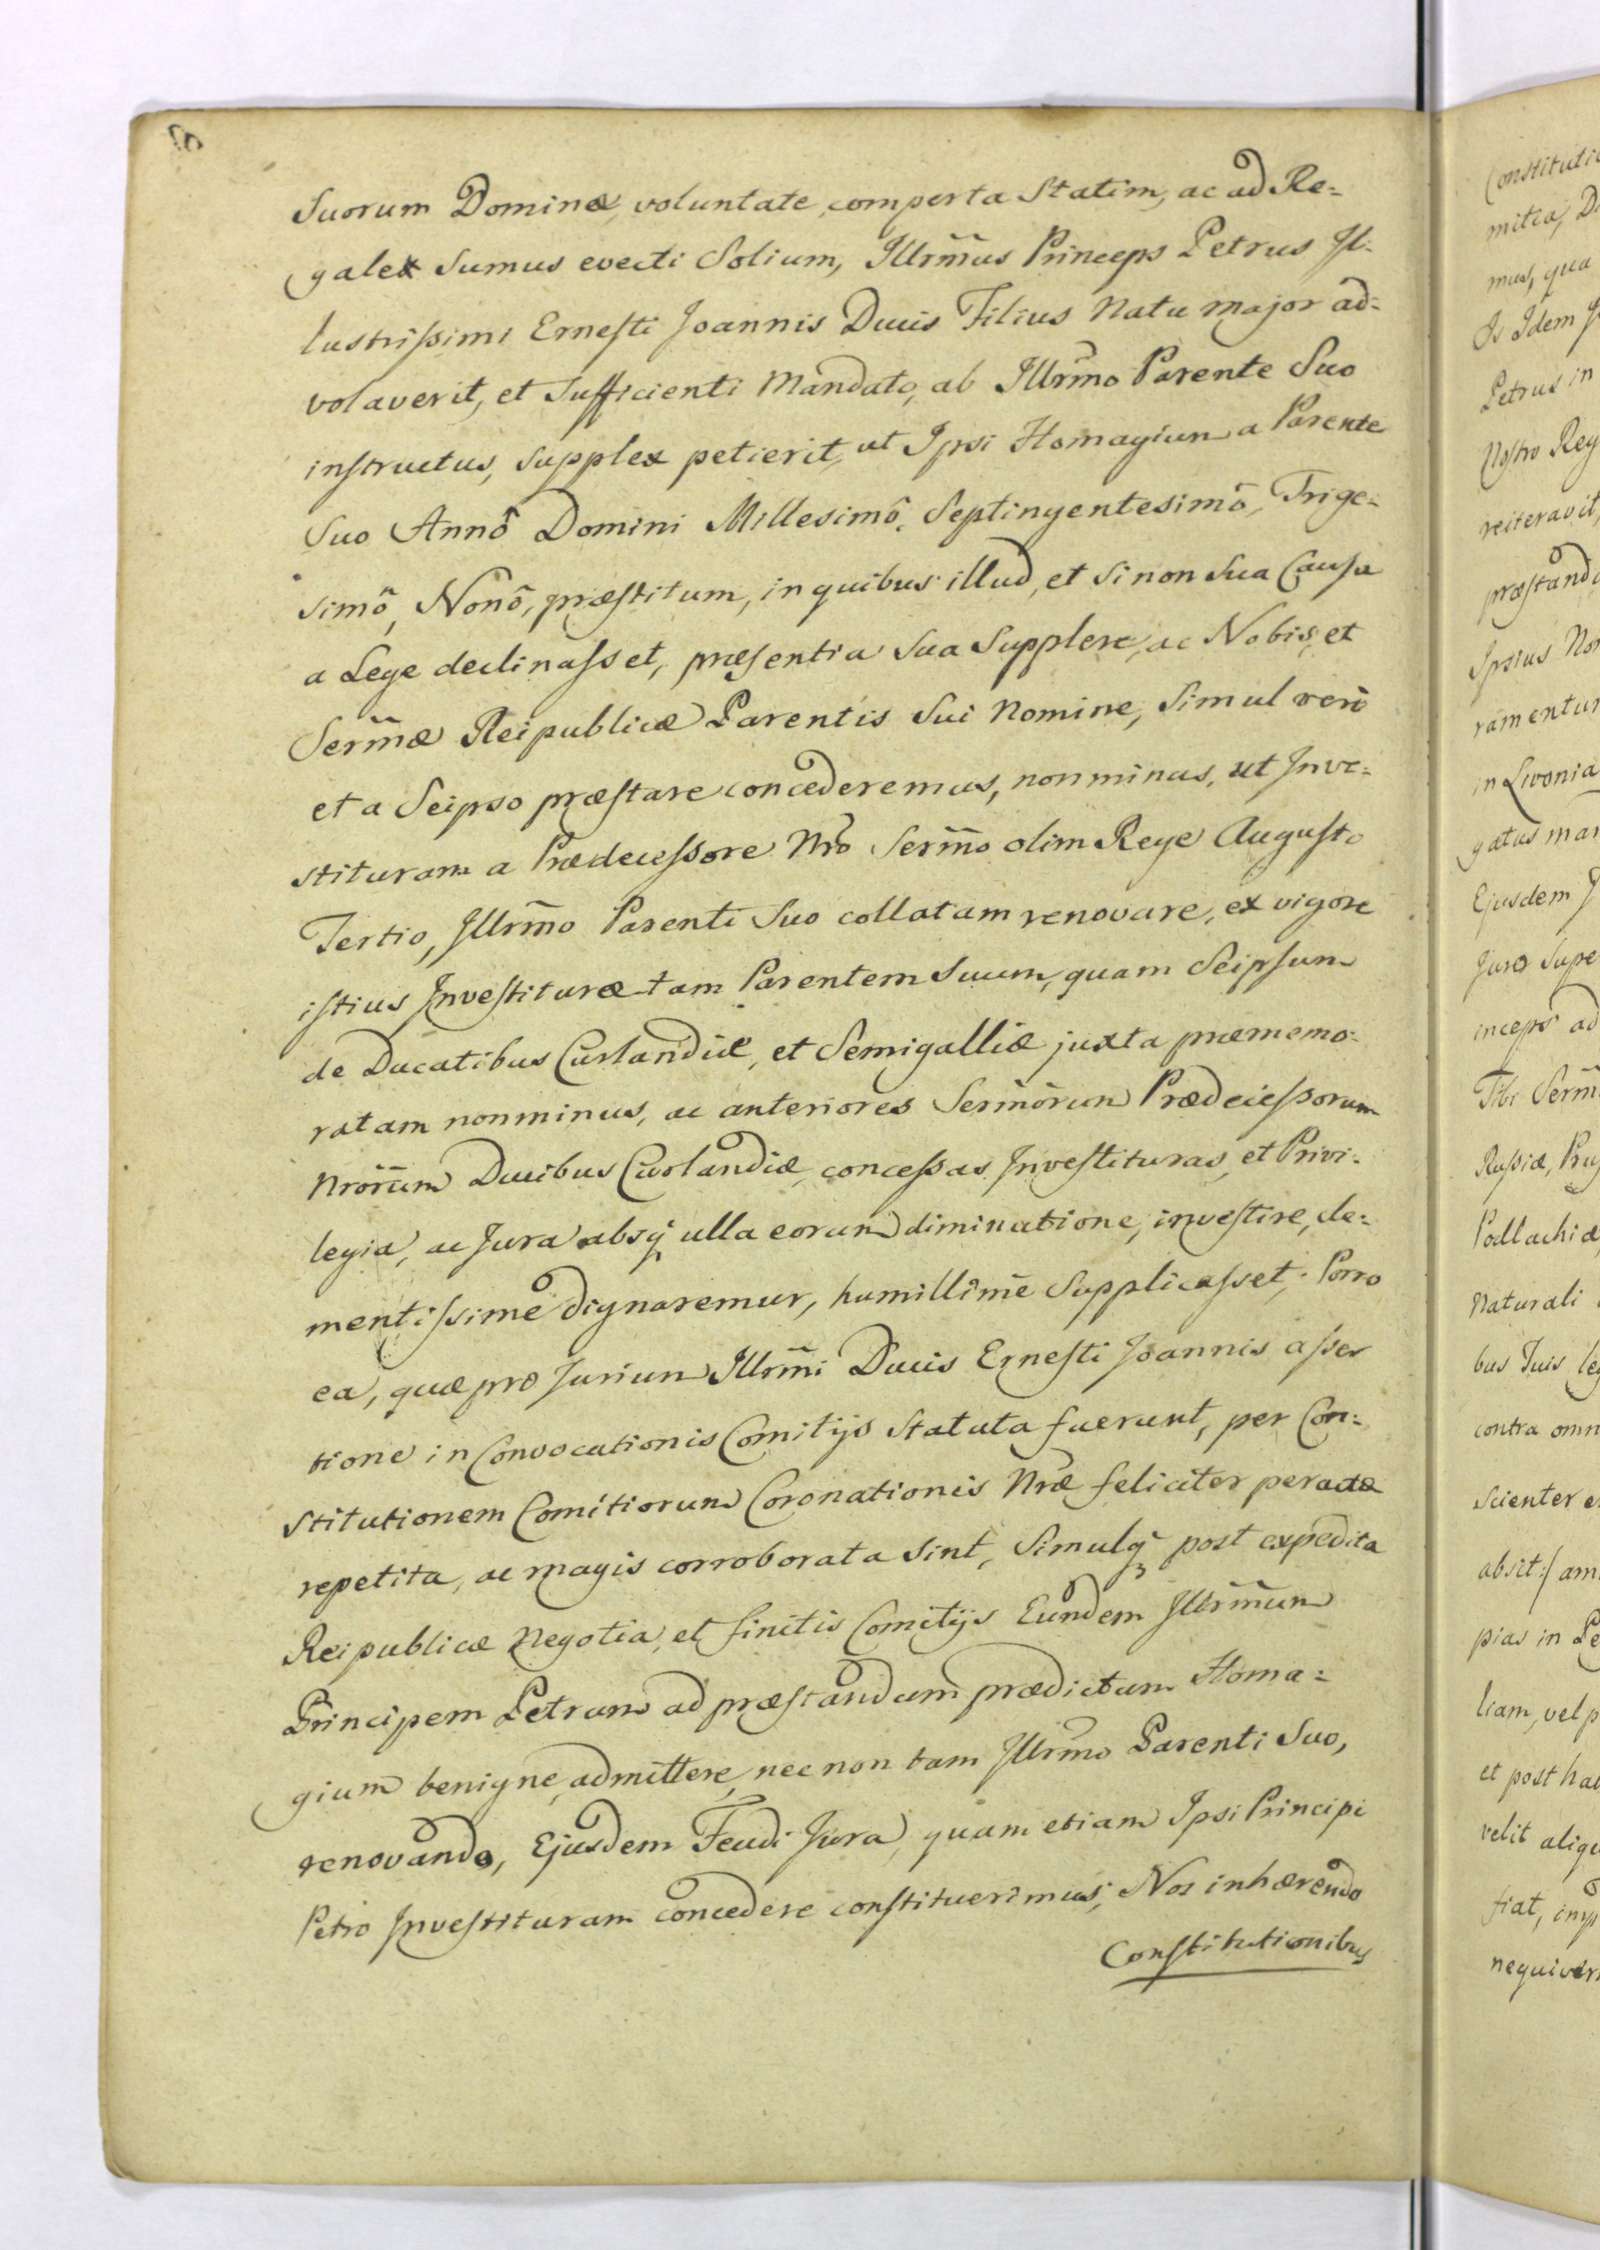 Suorum Dominæ, voluntate comperta Statim, ac ad Re=
galex Sumus evecti Solium, Illrm̃us Princeps Petrus Il=
lustrissimi Ernesti Joannis Ducis Filius Natu major ad=
volaverit, et Sufficienti Mandato, ab Illrm̃o Parente Suo
instructus, Supplex petierit, ut Ipsi Homagium a Parente
Suo Annô Domini Millesimô, Septingentesimô, Trige=
simô, Nonô, præstitum, in quibus illud, et si non Sua Causa
a Lege declinasset, præsentia Sua Supplere, ac Nobis, et
Serm̃æ Reipublicæ Parentis Sui Nomine, Simul verò
et a Seipso præstare concederemus, nonminus, ut Inve=
stituram a Prædecessore Nr̃o Serm̃o olim Rege Augusto
Tertio, Illrm̃o Parenti Suo collatam renovare, ex vigore
istius Investituræ tam Parentem Suum, quam Seipsum
de Ducatibus Curlandiæ, et Semigalliæ juxta præmemo=
ratam nonminus, ac anteriores Serm̃orum Prædecessorum
Nrõrum Ducibus Curlandiæ, concessas Investituras, et Privi=
legia, ac Jura absq; ulla eorum diminutione, investire, cle=
mentissimè dignaremur, humillimè Supplicasset; Porro
ea, quæ pro Jurium Illrm̃i Ducis Ernesti Joannis asser
tione in Convocationis Comitijs Statuta fuerunt, per Con=
stitutionem Comitiorum Coronationis Nræ feliciter peractæ
repetita, ac magis corroborata sint, Simulq; post expedita
Reipublicæ Negotia, et finitis Comitijs Eundem Illrm̃um
Principem Petrum ad præstandum prædictum Homa=
gium benigne admittere, nec non tam Illrm̃o Parenti Suo,
renovando, Ejusdem Feudi Jura, quam etiam Ipsi Principi
Petro Investituram concedere constituerimus; Nos inhærendo
Constitutionibus
Constituti
mitia,
mus, qua
Is Idem
Petrus in
Nostro Reg
reiteravit,
præstand
Ipsius No
ramentum
in Livonia
gatus man
Ejusdem J
Jura Supe
inceps ad
Tibi Serm̃
Russiæ, Prus
Podlachiæ,
Naturali
bus Tuis leg
contra omn
scienter e
absit :/ am
pias in Pe
liam, vel p
et post hac
velit aliqu
fiat, imp
nequiver